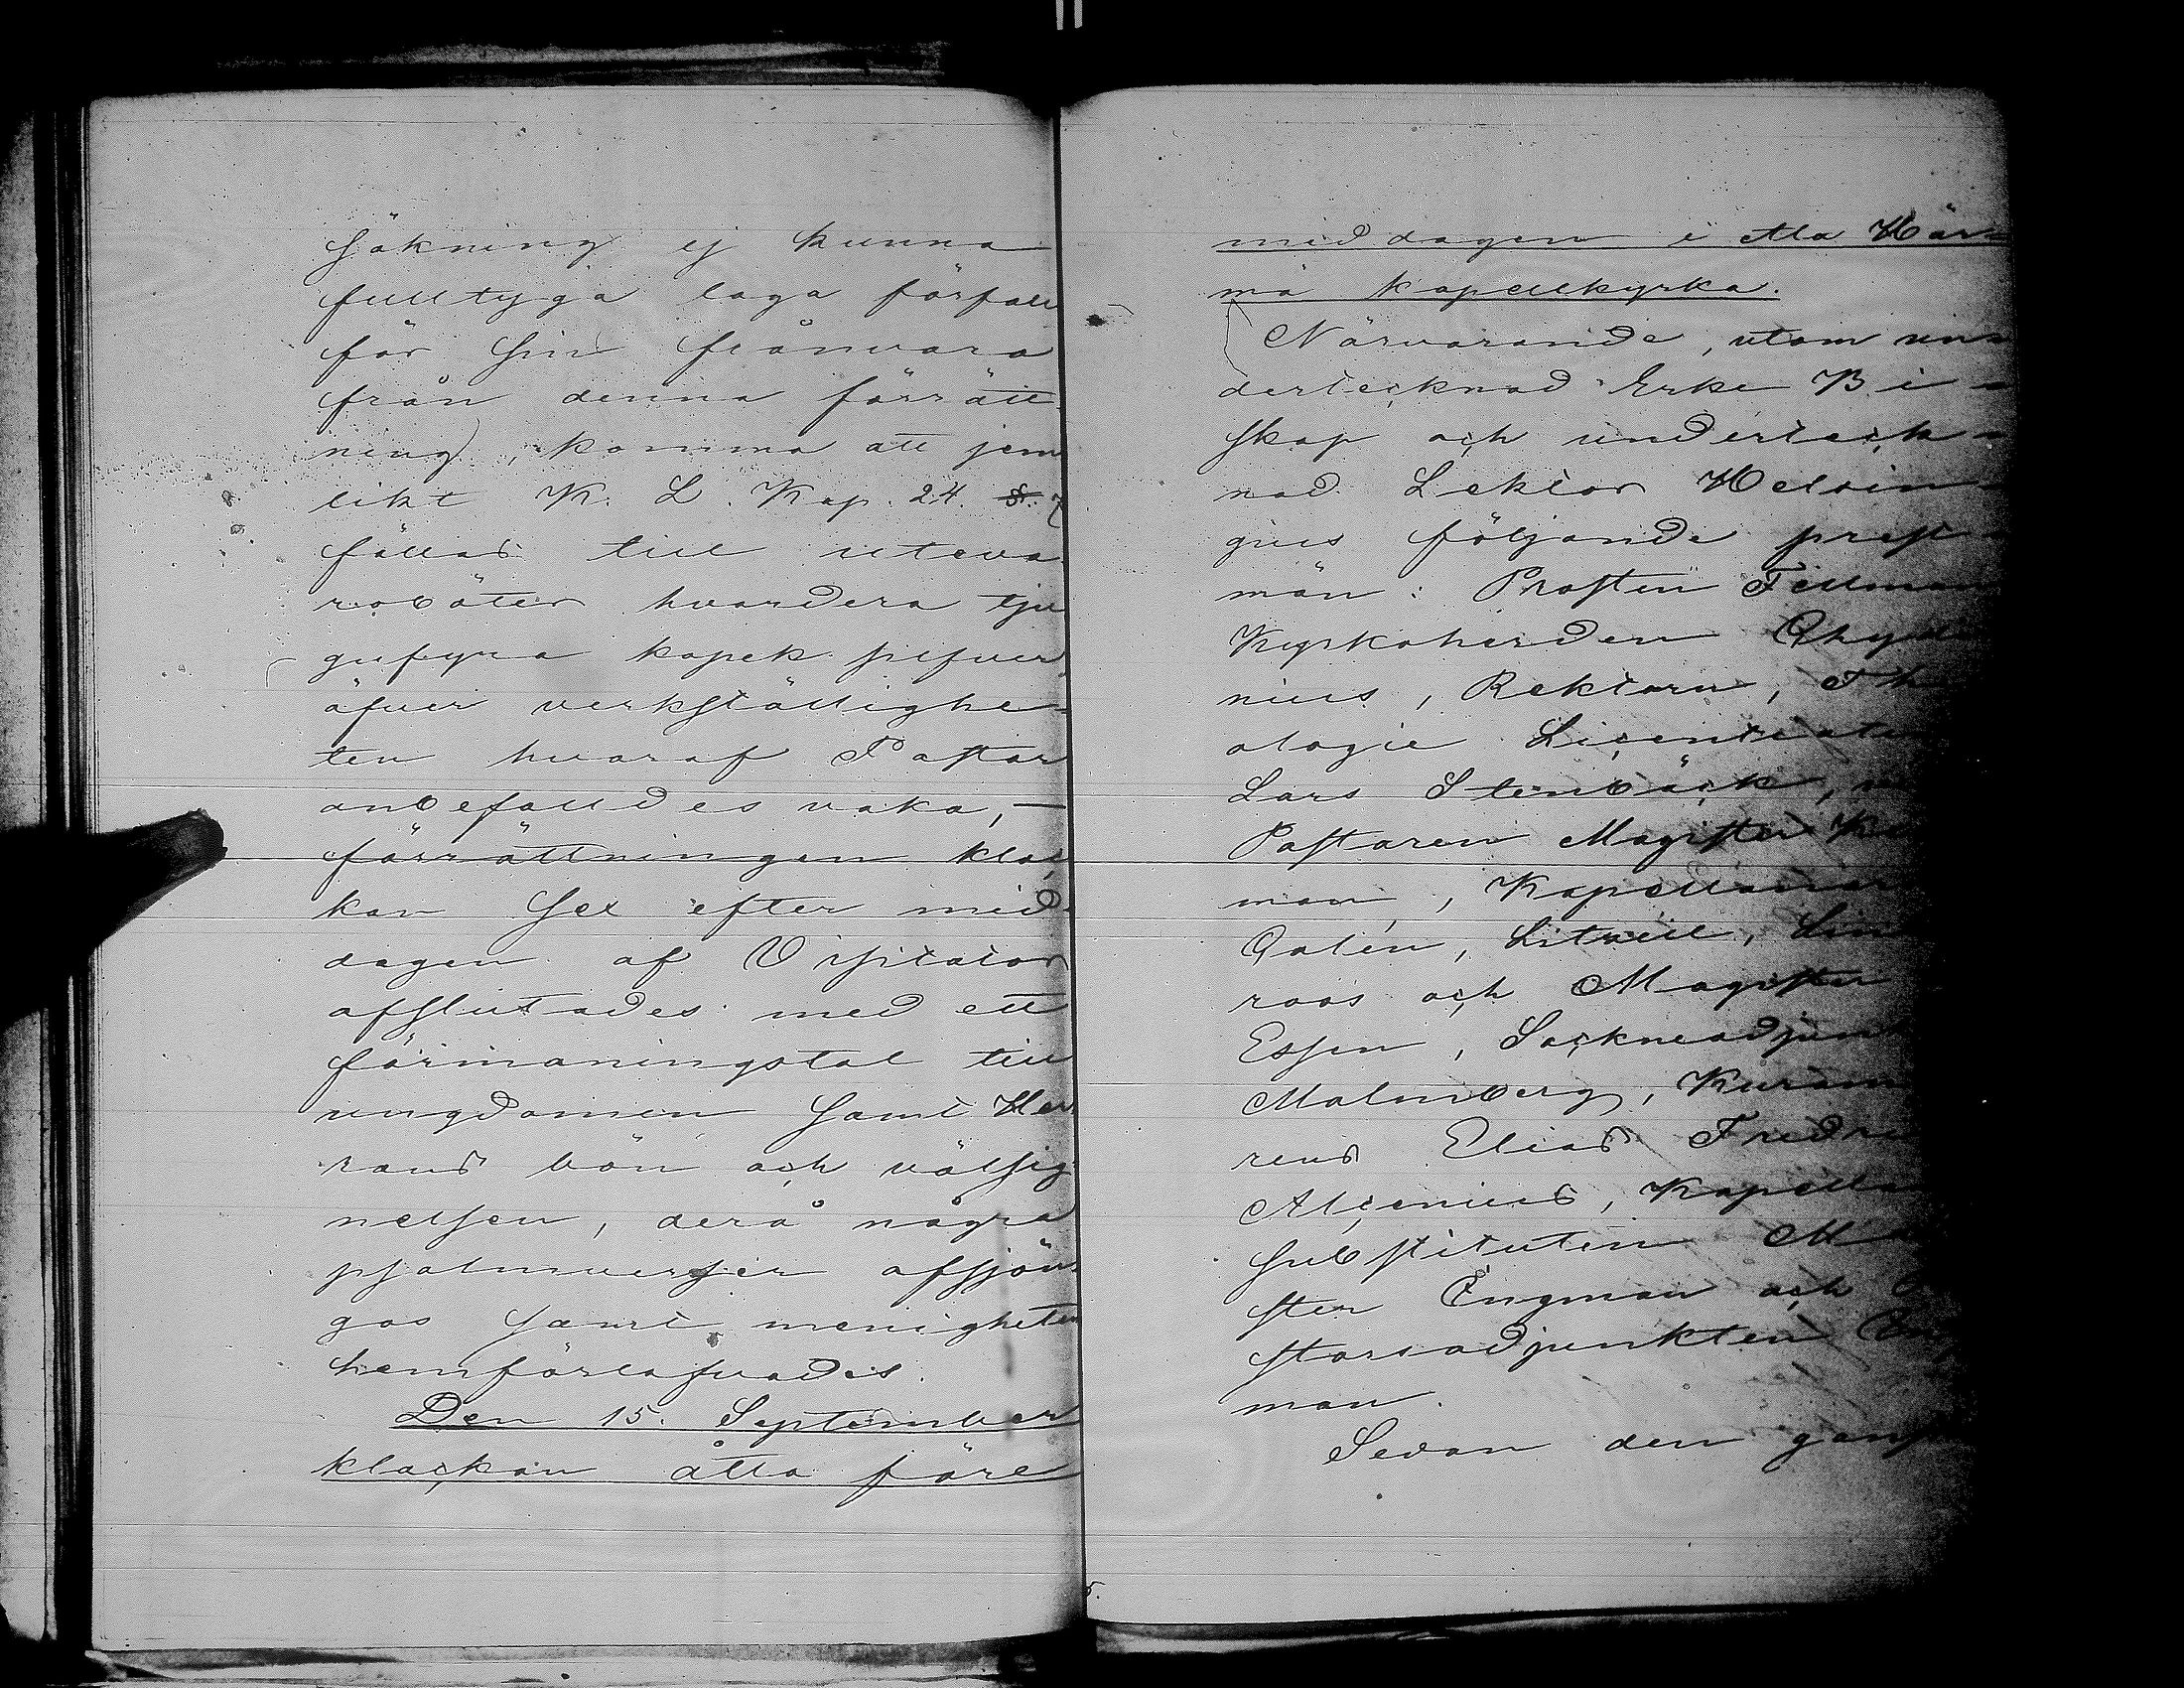 sökning ej kunna
fulltyga laga förfall
för sin frånvara
från denna förrätt-
ning, komma att jem
likt K. L. Kap. 24. §. 7
fällas till uteva-
roböter hvardera tju
gufyra kopek silfver,
öfver verkställighe-
ten hvaraf Pastor
anbefalldes vaka, —
förrättningen kloc
kan sex efter mid-
dagen af Visitator
afslutades med ett
förmaningstal till
ungdomen samt Her-
rans bön och välsig-
nelsen, derå några
psalmverser afsjön-
gos samt menigheten
hemförlofvades.
Den 15. September
klockan åtta före
middagen i Alahär-
mä kapellkyrka.
Närvarande, utom un-
dertecknad Erke Bi-
skop och underteck-
nad Lektor Helsin-
gius följande prest-
män: Prosten Fellman
Kyrkoherden
nius, Rektorn, The
ologie Licentiaten
Lars Stenbäck,
Pastoren Magister
man, Kapellanerne
Dalén, Litzell, Lin
roos och Magister
Essen, Sockneadjunkt
Malmberg,
rens Elias Fredr
Alcenius, Kapellans
substituten Magi
ster Engman och
storsadjunkten Eng
man.
Sedan den